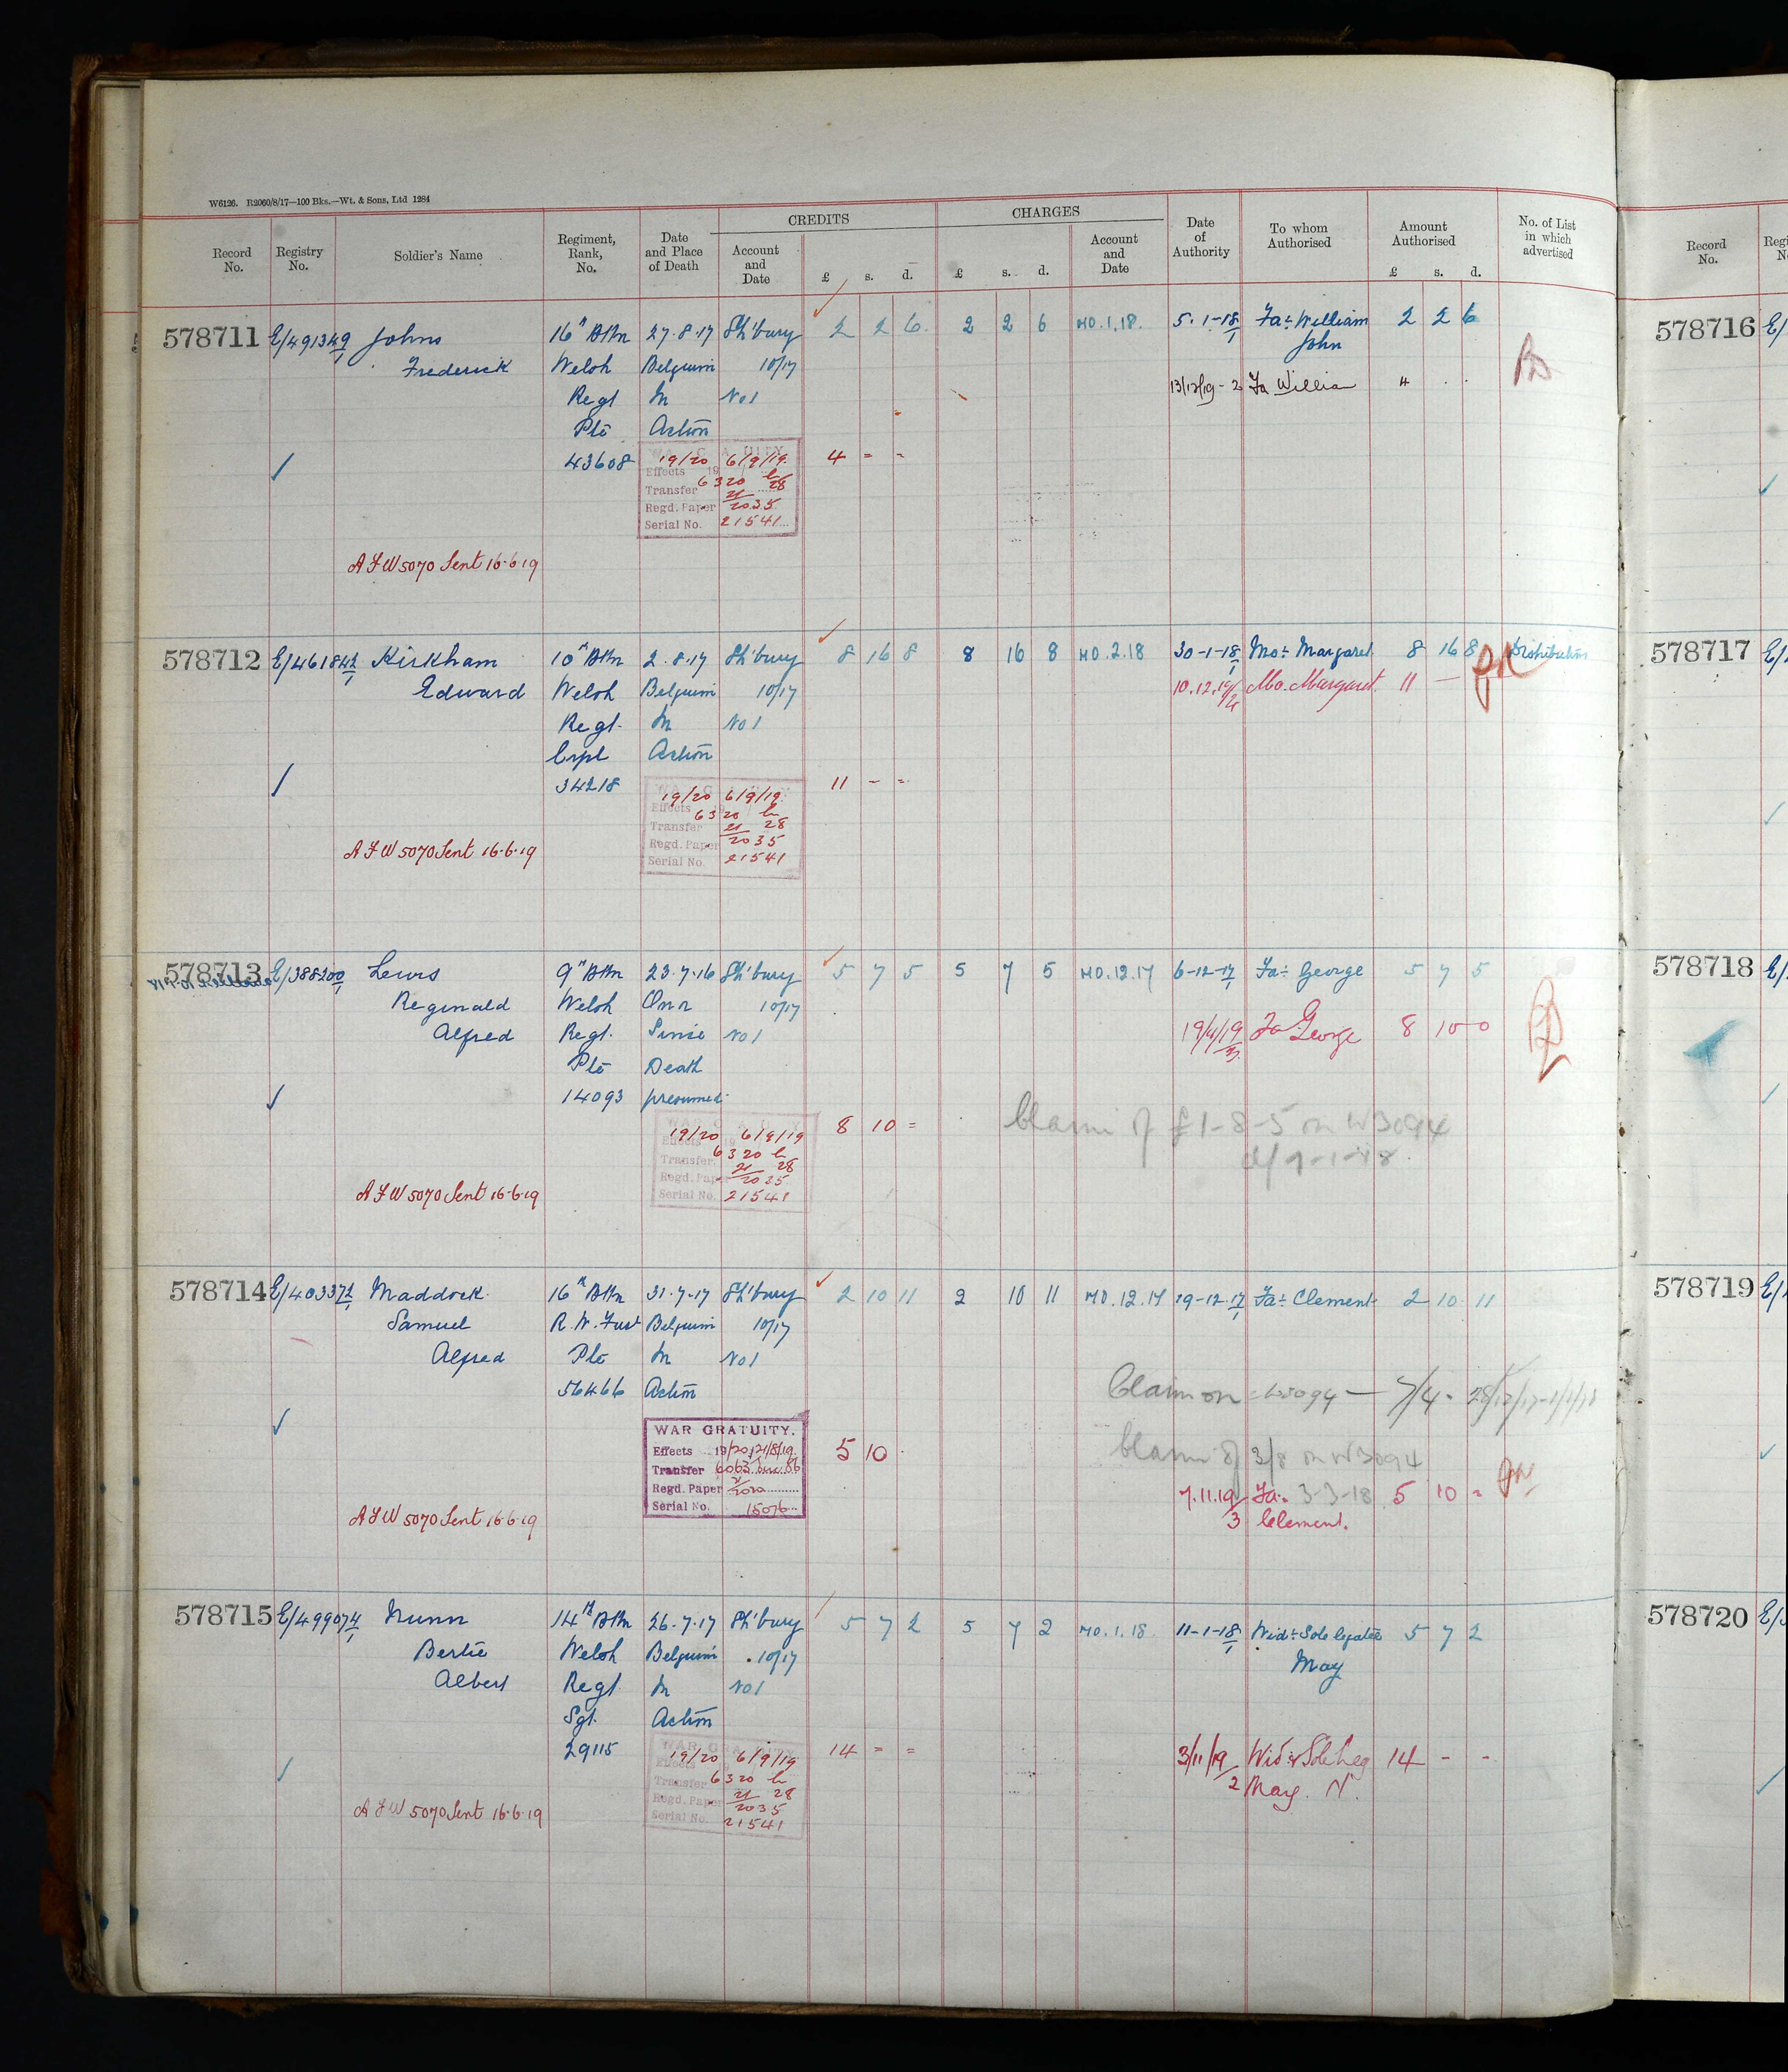 W6126. R2060/8/17—100 Bks.—Wt. & Sons, Ltd 1284
Record No. Registry No. Soldier's Name Regiment, Rank, No. Date and Place of Death CREDITS Account and Date £ s. d. CHARGES £ s. d. Account and Date Date of Authority To whom Authorised Amount Authorised £ s. d. No. of List in which advertised
Record No.
578711 E/491349/1 Johns 16th Bttn 27.8.17 Sh'bury 2 2 6 2 2 6 MO.1.18. 5.1-18/1 Fa: William 2 2 6
Frederick Welsh Belgium 10/17 John
Regt In No1 13/12/19-2 Fa William 4 . .
Pte Action
43608 19/20 6/9/19. 4 = =
Effects 19
Transfer 6320 28
Regd. Paper 21/2035
Serial No. 21541
A F W 5070 Sent 16.6.19
578712 E/461842/1 Kirkham 10th Bttn 2.8.17 Sh'bury 8 16 8 8 16 8 MO.2.18 30-1-18/1 Mo: Margaret 8 16 8 Distribution
Edward Welsh Belgium 10/17 10.12.19/4 Mo. Margaret. 11 —
Regt. In No1
Crpl Action
34218 19/20 6/9/19. 11 - =
Effects 19
Transfer 6320 28
Regd. Paper 21/2035
Serial No. 21541
A F W 5070 Sent 16.6.19
578713 E/388200/1 Lewis 9th Bttn 23.7.16 Sh'bury 5 7 5 5 7 5 MO.12.17 6-12-17/1 Fa: George 5 7 5
Reginald Welsh On or 10/17
Alfred Regt. Since No1 19/4/19/3 Fa George 8 10-0
Pte Death
14093 presumed
19/20 6/9/19 8 10 = Claim of £1-8-5 on W3094
Effects 19 d/9-1-18.
Transfer 6320 28
Regd. Paper 21/2035
Serial No. 21541
A F W 5070 Sent 16.6.19
578714 E/403372/1 Maddock 16th Bttn 31.7.17 Sh'bury 2 10 11 2 10 11 MO.12.17 19-12-17/1 Fa: Clement 2 10 11
Samuel R.W.Fus Belgium 10/17
Alfred Pte In No1
56466 Action Claim on W3094 — 7/4 -
WAR GRATUITY. 5 10 Claim of 3/8 on W3094
Effects 19/20, 21/8/19
Transfer 6063 86
Regd. Paper 21/2020 7.11.19/3 Fa: 3-3-18 5 10 =
Serial No. 15076 Clement.
A F W 5070 Sent 16.6.19
578715 E/499074/1 Nunn 14th Bttn 26.7.17 Sh'bury 5 7 2 5 7 2 MO.1.18. 11-1-18/1 Wid: Sole legatee 5 7 2
Bertie Welsh Belgium 10/17 May
Albert Regt In No1
Sgt. Action
29115 19/20 6/9/19 14 = = 3/11/19/2 Wid & Sole Leg 14 - -
Effects May. N.
Transfer 6320 28
Regd. Paper 21/2035
Serial No. 21541
A F W 5070 Sent 16.6.19
578716 E/
578717 E/
578718 E/
578719 E/
578720 E/